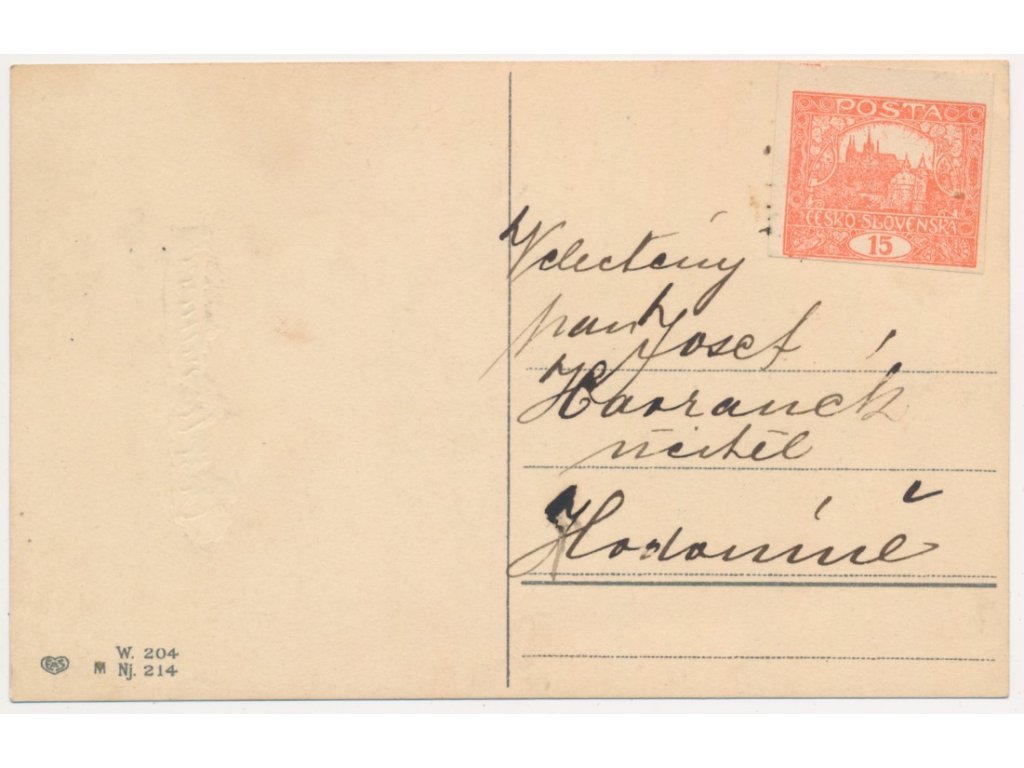 POSTA
ČESKO-SLOVENSKÁ
15
Velectěný
pan Josef
Havránek
učitel
Hodoníně
EAS
W. 204
M Nj. 214